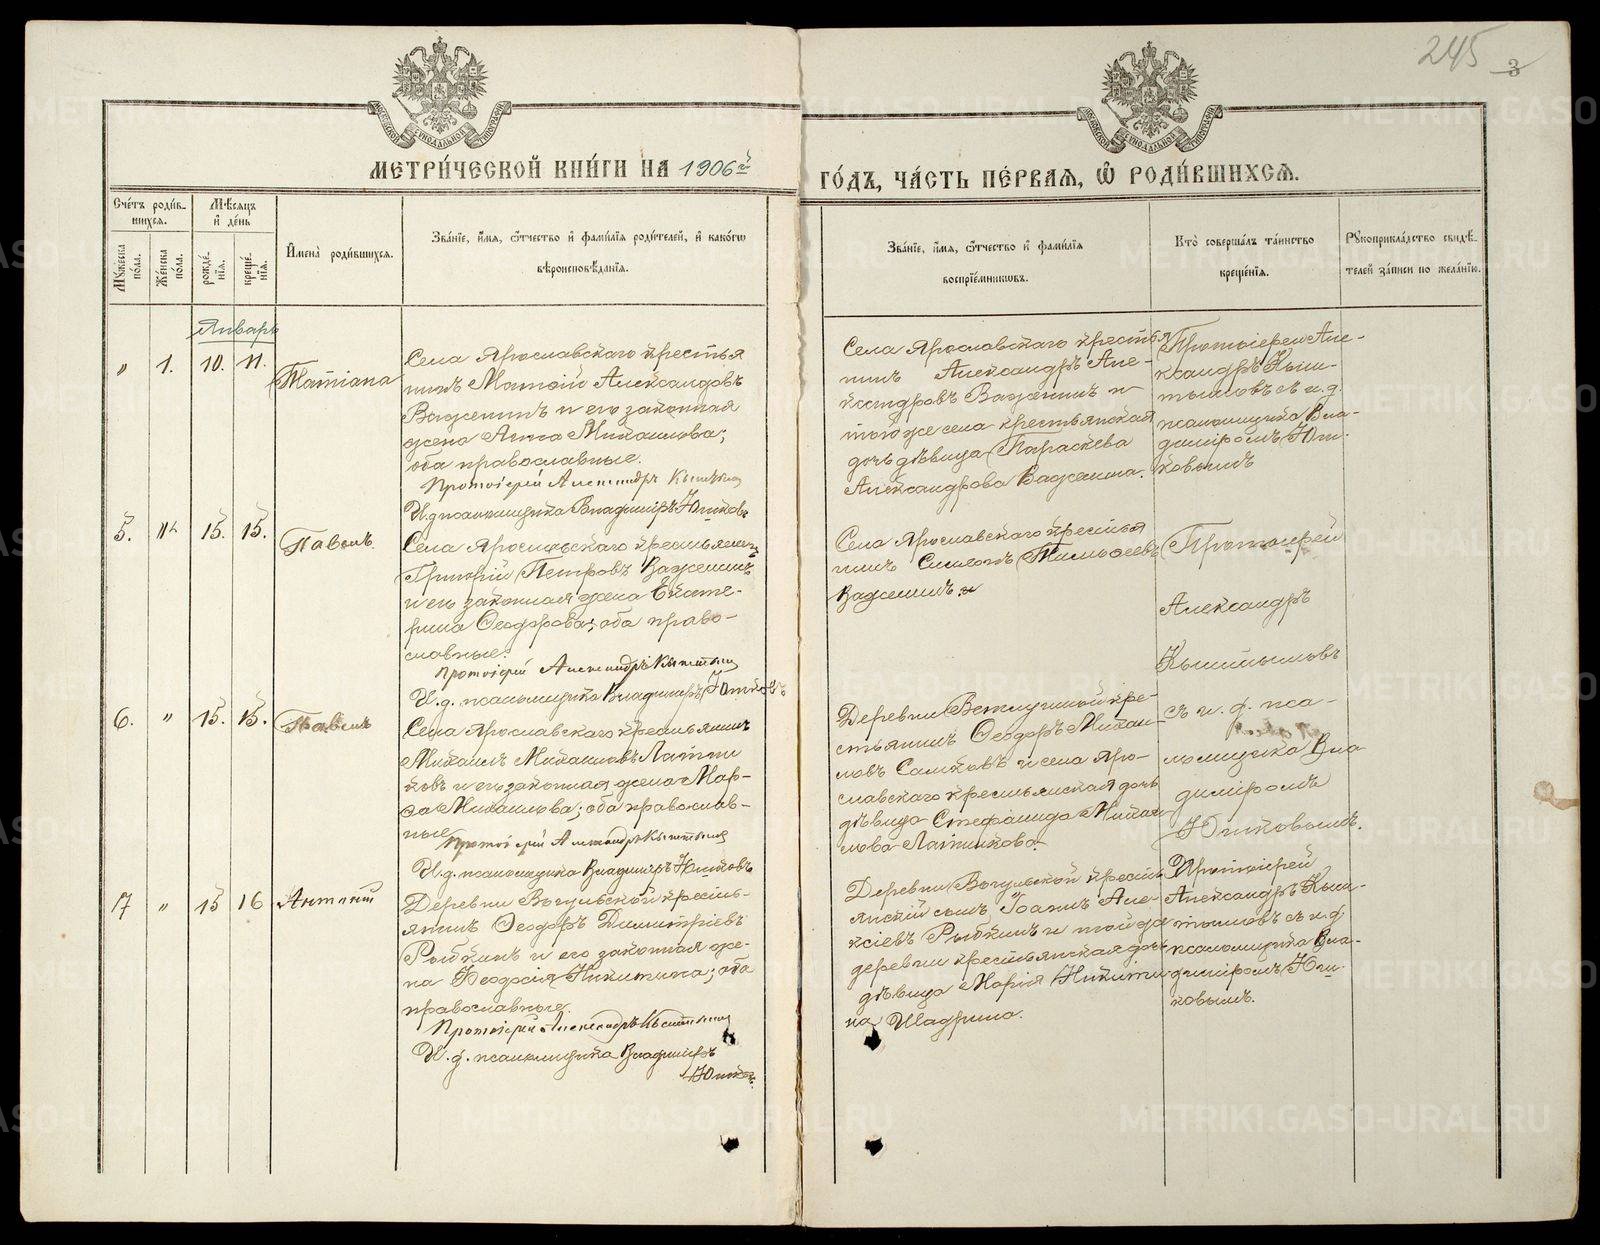 245 3
МОСКОВСКОЙ СѴНОДАЛЬНОЙ ТИПОГРАФІИ
МОСКОВСКОЙ СѴНОДАЛЬНОЙ ТИПОГРАФІИ
МЕТРИ́ЧЕСКОЙ КНИ́ГИ НА 1906й ГО́ДЪ, ЧА́СТЬ ПЕ́РВАЯ, Ѡ РОДИ́ВШИХСЯ.
Сче́тъ роди́в-
шихся.
Мꙋжеска
по́ла.
Же́нска
по́ла.
Мѣ́сяцъ
и҆ де́нь
рожде́-
нїя.
креще́-
нїя.
И҆мена̀ роди́вшихся.
Зва́нїе, и҆́мя, ѻ҆́тчество и҆ фами́лїя роди́телей, и҆ како́гѡ
вѣроисповѣ́данїя.
Зва́нїе, и҆́мя, ѻ҆́тчество и҆ фами́лїя
воспрїе́мникѡвъ.
Кто̀ соверша́лъ та́инство
креще́нїя.
Рꙋкоприкла́дство свидѣ́-
телей за́писи по жела́нїю.
Январь
" 1. 10. 11.
Татіана
Села Ярославскаго крестья
нинъ Матѳій Александровъ
Важенинъ и его законная
жена Анна Михаилова;
оба православные.
Протоіерей Александръ Кыштымовъ
И.д. псаломщика Владиміръ Ютковъ
Села Ярославскаго крестья
нинъ Александръ Але-
ксандровъ Важенинъ и
того же села крестьянская
дочь дѣвица Параскева
Александрова Важенина.
Протоіерей Але-
ксандръ Кыш-
тымовъ съ и.д.
псаломщика Вла-
диміромъ Ют-
ковымъ
5. " 15. 15.
Павелъ
Села Ярославскаго крестьянинъ
Григорій Петровъ Важенинъ
и его законная жена Екате-
рина Ѳеодорова; оба право-
славные.
Протоіерей Александръ Кыштымовъ
И.д. псаломщика Владиміръ Ютковъ
Села Ярославскаго крестья
нинъ Симеонъ Тимоѳеевъ
Важенинъ.
Протоіерей
Александръ
Кыштымовъ
съ и. д. пса-
ломщика Вла-
диміромъ
Ютковымъ.
6. " 15. 15.
Павелъ
Села Ярославскаго крестьянинъ
Михаилъ Михаиловъ Латни
ковъ и его законная жена Мар-
ѳа Михаилова; оба православ-
ные.
Протоіерей Александръ Кыштымовъ
И.д. псаломщика Владиміръ Ютковъ
Деревни кре-
стьянинъ Ѳеодоръ Михаи-
ловъ и села Яро-
славскаго крестьянская дочь
дѣвица Стефанида Михаи
лова Латникова.
7 " 15 16
Антоній
Деревни Вогульской кресть-
янинъ Ѳеодоръ Димитріевъ
Рыбкинъ и его законная же-
на Ѳеодосія Никитина; оба
православные.
Протоіерей Александръ Кыштымовъ
И.д. псаломщика Владиміръ
Ютковъ.
Деревни Вогульской кресть
янскій сынъ Іоаннъ Але-
ксіевъ Рыбкинъ и той же
деревни крестьянская дочь
дѣвица Марія Никити-
на Шадрина.
Протоіерей
Александръ Кыш-
тымовъ съ и.д.
псаломщика Вла-
диміромъ Ют-
ковымъ.
METRIKI.GASO-URAL.RU